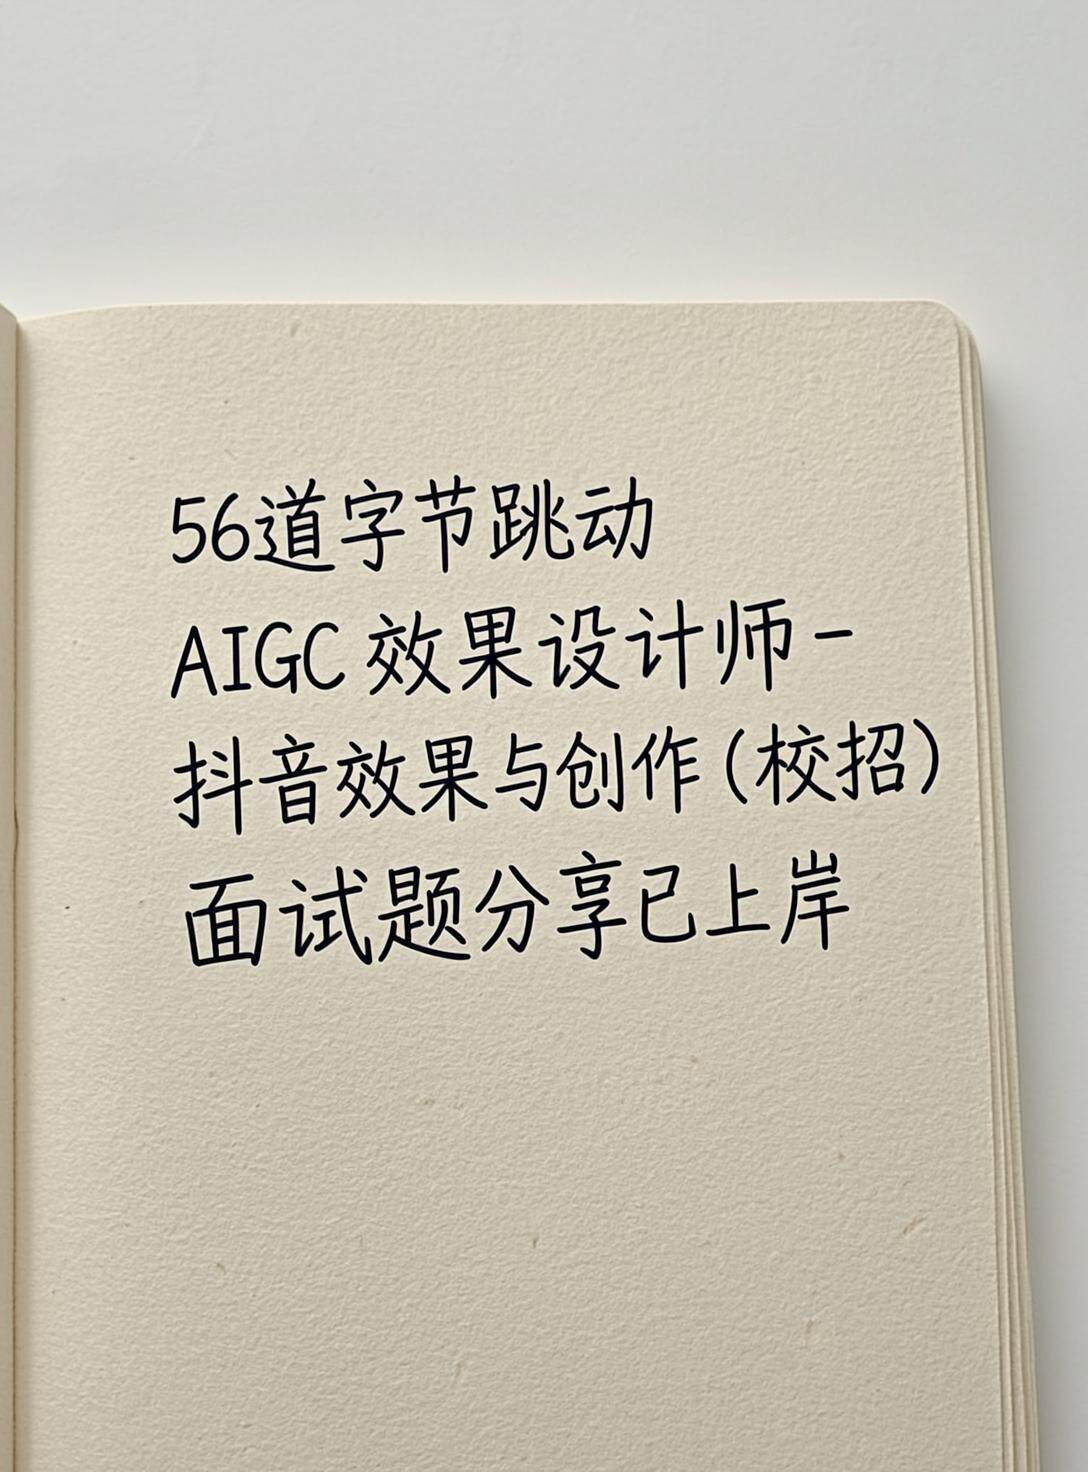 56道字节跳动
AIGC 效果设计师-
抖音效果与创作(校招)
面试题分享已上岸